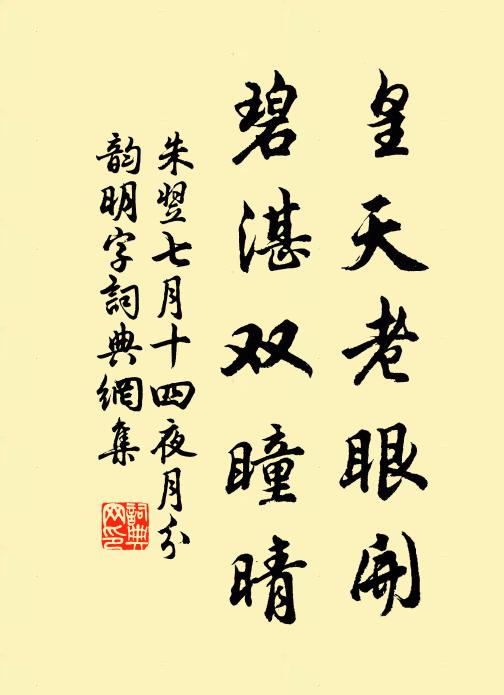 皇天老眼開
碧湛双瞳晴
朱翌七月十四夜月分
韵明字詞典網集
詞典
网印